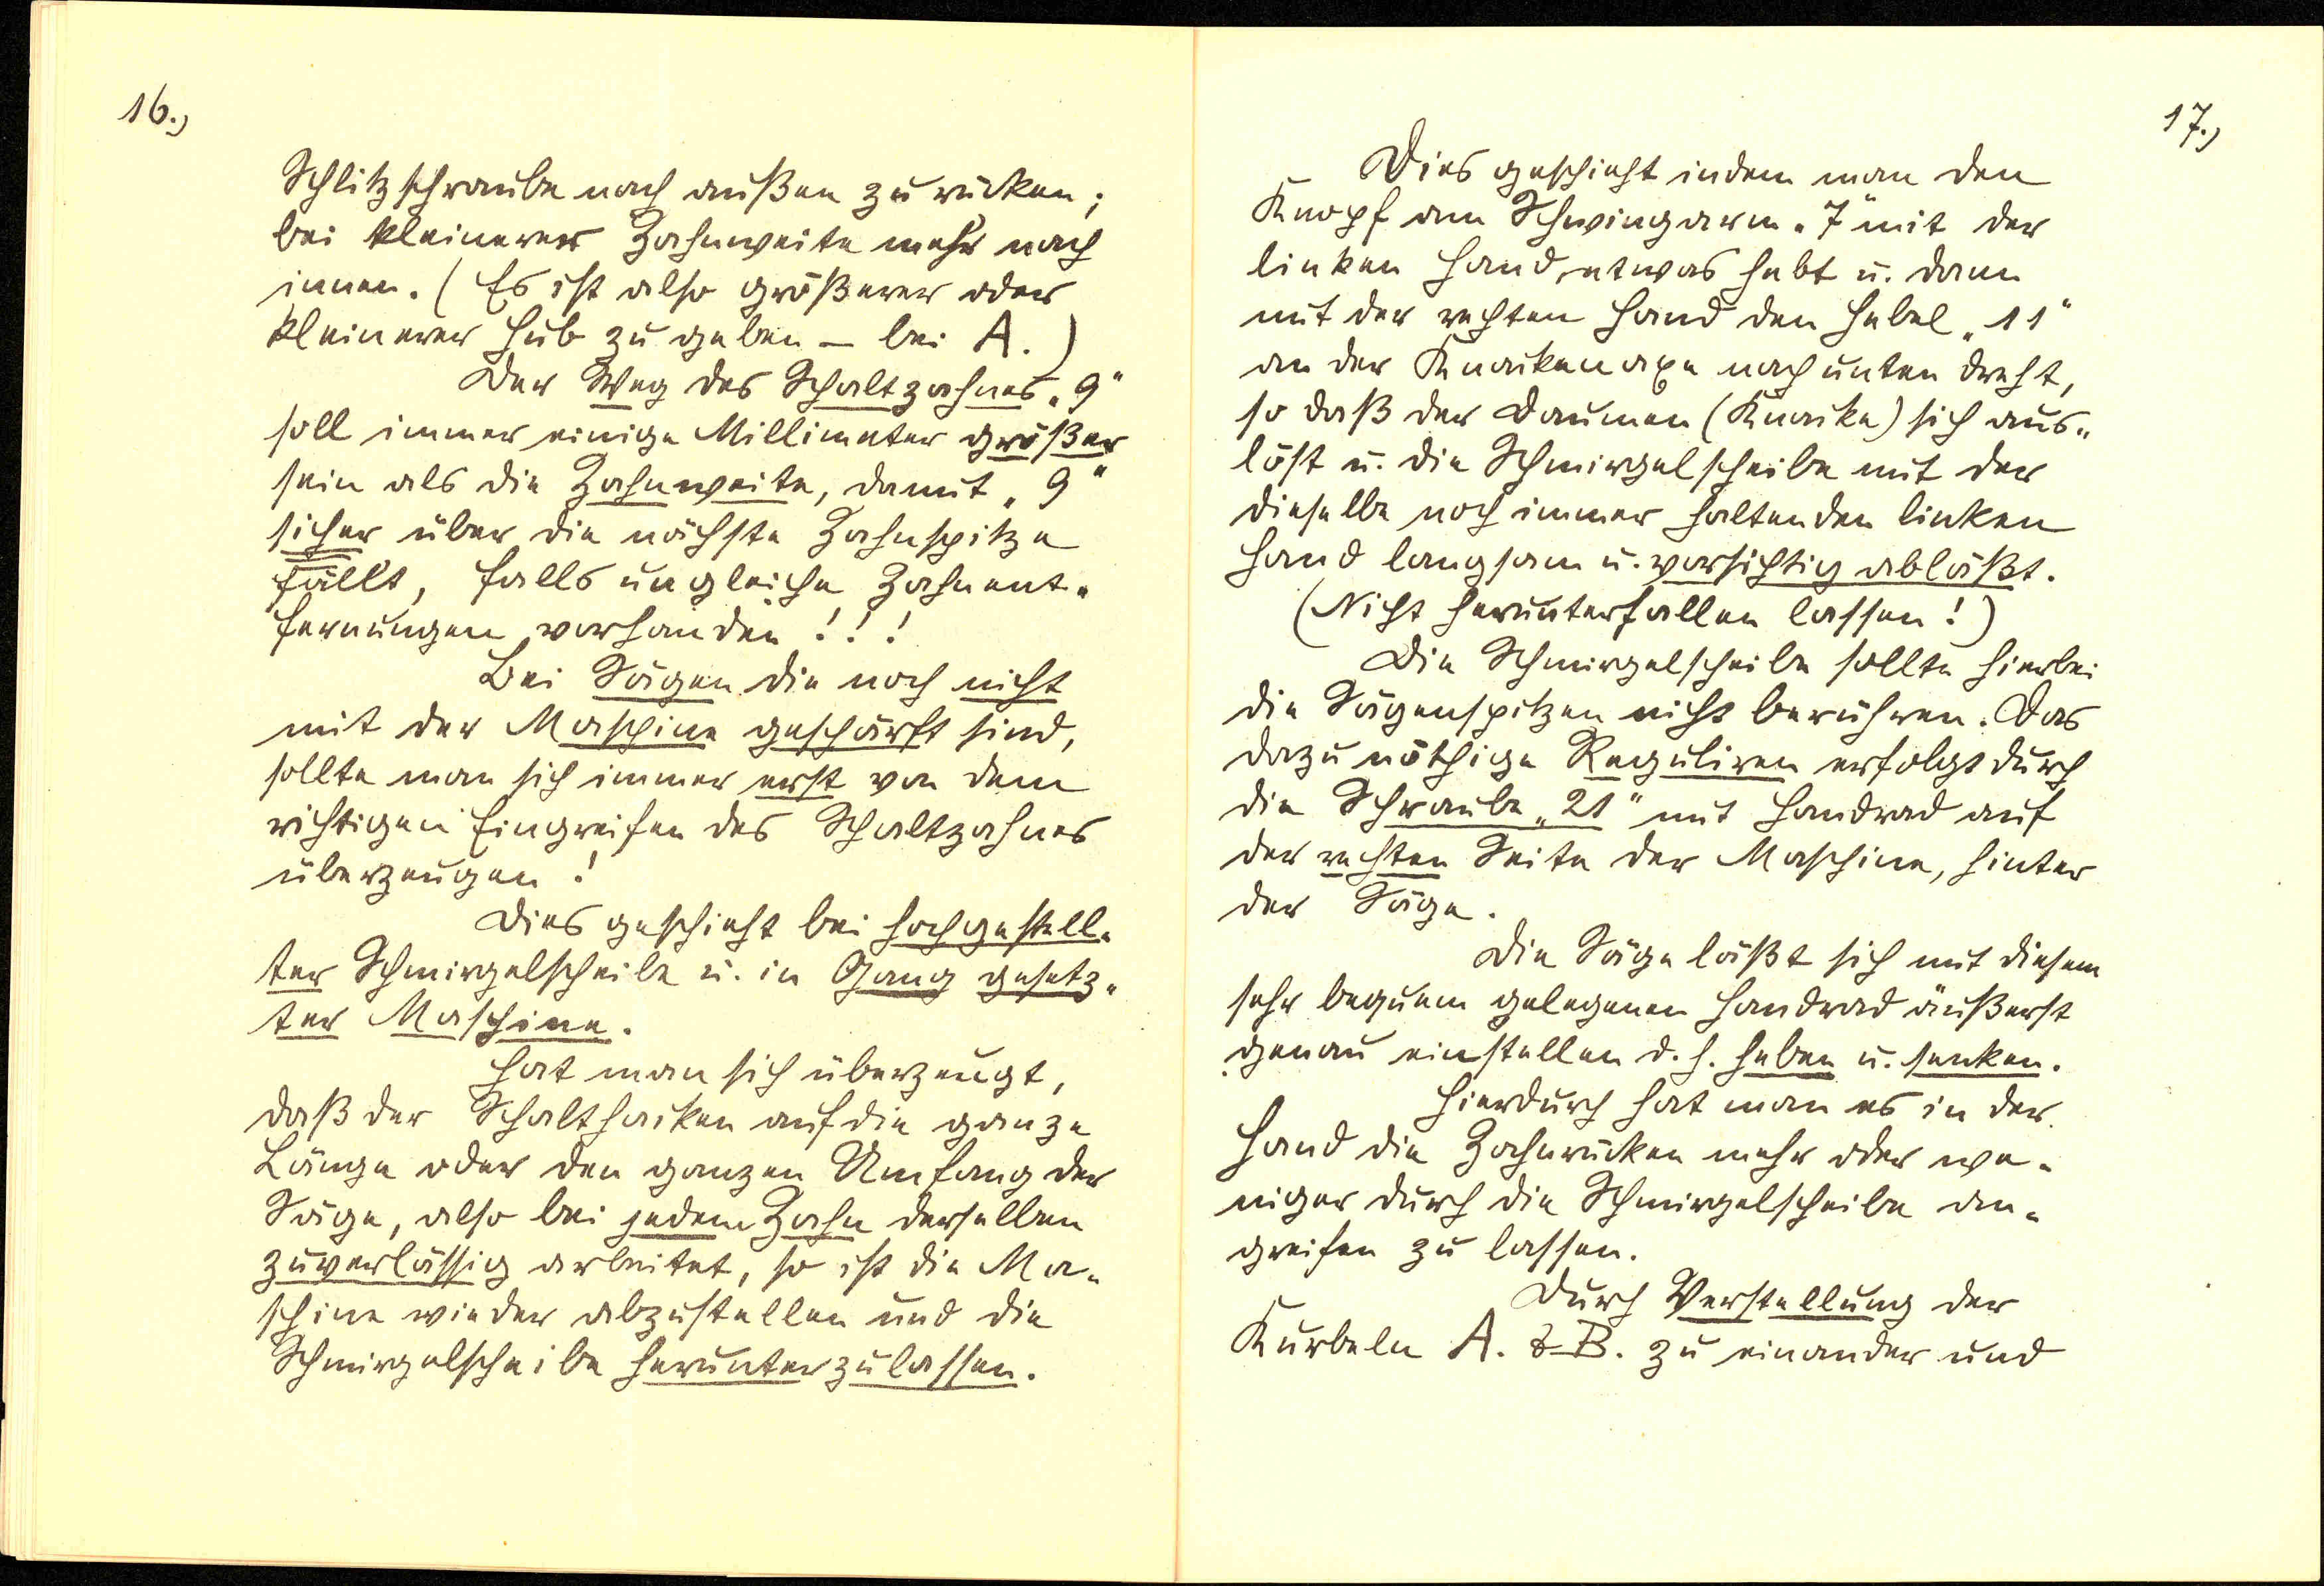 16.)
Schlitzschraube nach außen zu rücken;
bei kleinerer Zahnweite mehr nach
innen. (Es ist also größerer oder
kleinerer Hub zu geben – bei A.)
Der Weg des Schaltzahnes „9"
soll immer einige Millimeter größer
sein als die Zahnweite, damit „9"
sicher über die nächste Zahnspitze
fällt, falls ungleiche Zahnent-
fernungen vorhanden!!!
Bei Sägen die noch nicht
mit der Maschine geschärft sind,
sollte man sich immer erst von dem
richtigen Eingreifen des Schaltzahnes
überzeugen!
Dies geschieht bei hochgestell-
ter Schmirgelscheibe u. in Gang gesetz-
ter Maschine.
Hat man sich überzeugt,
daß der Schalthacken auf die ganze
Länge oder den ganzen Umfang der
Säge, also bei jedem Zahn derselben
zuverlässig arbeitet, so ist die Ma-
schine wieder abzustellen und die
Schmirgelscheibe herunterzulassen.
17.)
Dies geschieht indem man den
Knopf am Schwingarm „7" mit der
linken Hand etwas hebt u. dann
mit der rechten Hand den Hebel „11"
an der Knackenaxe nach unten dreht,
so daß der Daumen (Knacke) sich aus-
löst u. die Schmirgelscheibe mit der
dieselbe noch immer haltenden linken
Hand langsam u. vorsichtig abläßt.
(Nicht herunterfallen lassen!)
Die Schmirgelscheibe sollte hierbei
die Sägenspitzen nicht berühren. Das
dazu nöthige Reguliren erfolgt durch
die Schraube „21" mit Handrad auf
der rechten Seite der Maschine, hinter
der Säge.
Die Säge läßt sich mit diesem
sehr bequem gelegenen Handrad äußerst
genau einstellen d. h. heben u. senken.
Hierdurch hat man es in der
Hand die Zahnrücken mehr oder we-
niger durch die Schmirgelscheibe an-
greifen zu lassen.
Durch Verstellung der
Kurbeln A. & B. zu einander und